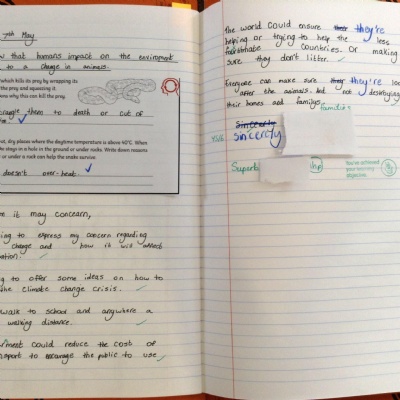 May
w that humans impact on the enviroment
to a change in animals.
which kills its prey by wrapping its
the prey and squeezing it.
ons why this can kill the prey
them to death or cut of
out, dry places where the daytime temperature is above 40°C. When
he stays in a hole in the ground or under rocks. Write down reasons
or under a rock can help the snake survive
doesn't over-heat.
it may concern,
ing to express my concern regarding
change and how it will affect
ation.
g to offer some ideas on how to
the climate change crisis.
walk to school and anywhere a
walking distance.
could reduce the cost of
nsport to encourage the public to use
the world could ensure their they're
helping or trying to help the less
countries. Or making
sure they don't litter.
Everyone can make sure they're loo
after the animals but not destroying
their homes and familys.
families
Sincerely
sincerely
Superb
You've achieved
your learning
objective.